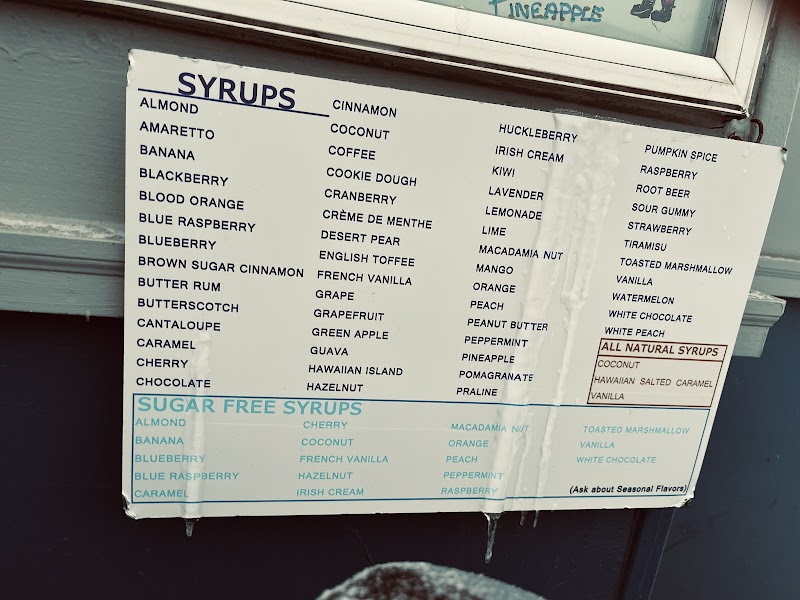 PINEAPPLE
SYRUPS
ALMOND
AMARETTO
BANANA
BLACKBERRY
BLOOD ORANGE
BLUE RASPBERRY
BLUEBERRY
BROWN SUGAR CINNAMON
BUTTER RUM
BUTTERSCOTCH
CANTALOUPE
CARAMEL
CHERRY
CHOCOLATE
CINNAMON
COCONUT
COFFEE
COOKIE DOUGH
CRANBERRY
CRÈME DE MENTHE
DESERT PEAR
ENGLISH TOFFEE
FRENCH VANILLA
GRAPE
GRAPEFRUIT
GREEN APPLE
GUAVA
HAWAIIAN ISLAND
HAZELNUT
HUCKLEBERRY
IRISH CREAM
KIWI
LAVENDER
LEMONADE
LIME
MACADAMIA NUT
MANGO
ORANGE
PEACH
PEANUT BUTTER
PEPPERMINT
PINEAPPLE
POMAGRANATE
PRALINE
PUMPKIN SPICE
RASPBERRY
ROOT BEER
SOUR GUMMY
STRAWBERRY
TIRAMISU
TOASTED MARSHMALLOW
VANILLA
WATERMELON
WHITE CHOCOLATE
WHITE PEACH
ALL NATURAL SYRUPS
COCONUT
HAWAIIAN SALTED CARAMEL
VANILLA
SUGAR FREE SYRUPS
ALMOND
BANANA
BLUEBERRY
BLUE RASPBERRY
CARAMEL
CHERRY
COCONUT
FRENCH VANILLA
HAZELNUT
IRISH CREAM
MACADAMIA NUT
ORANGE
PEACH
PEPPERMINT
RASPBERRY
TOASTED MARSHMALLOW
VANILLA
WHITE CHOCOLATE
(Ask about Seasonal Flavors)